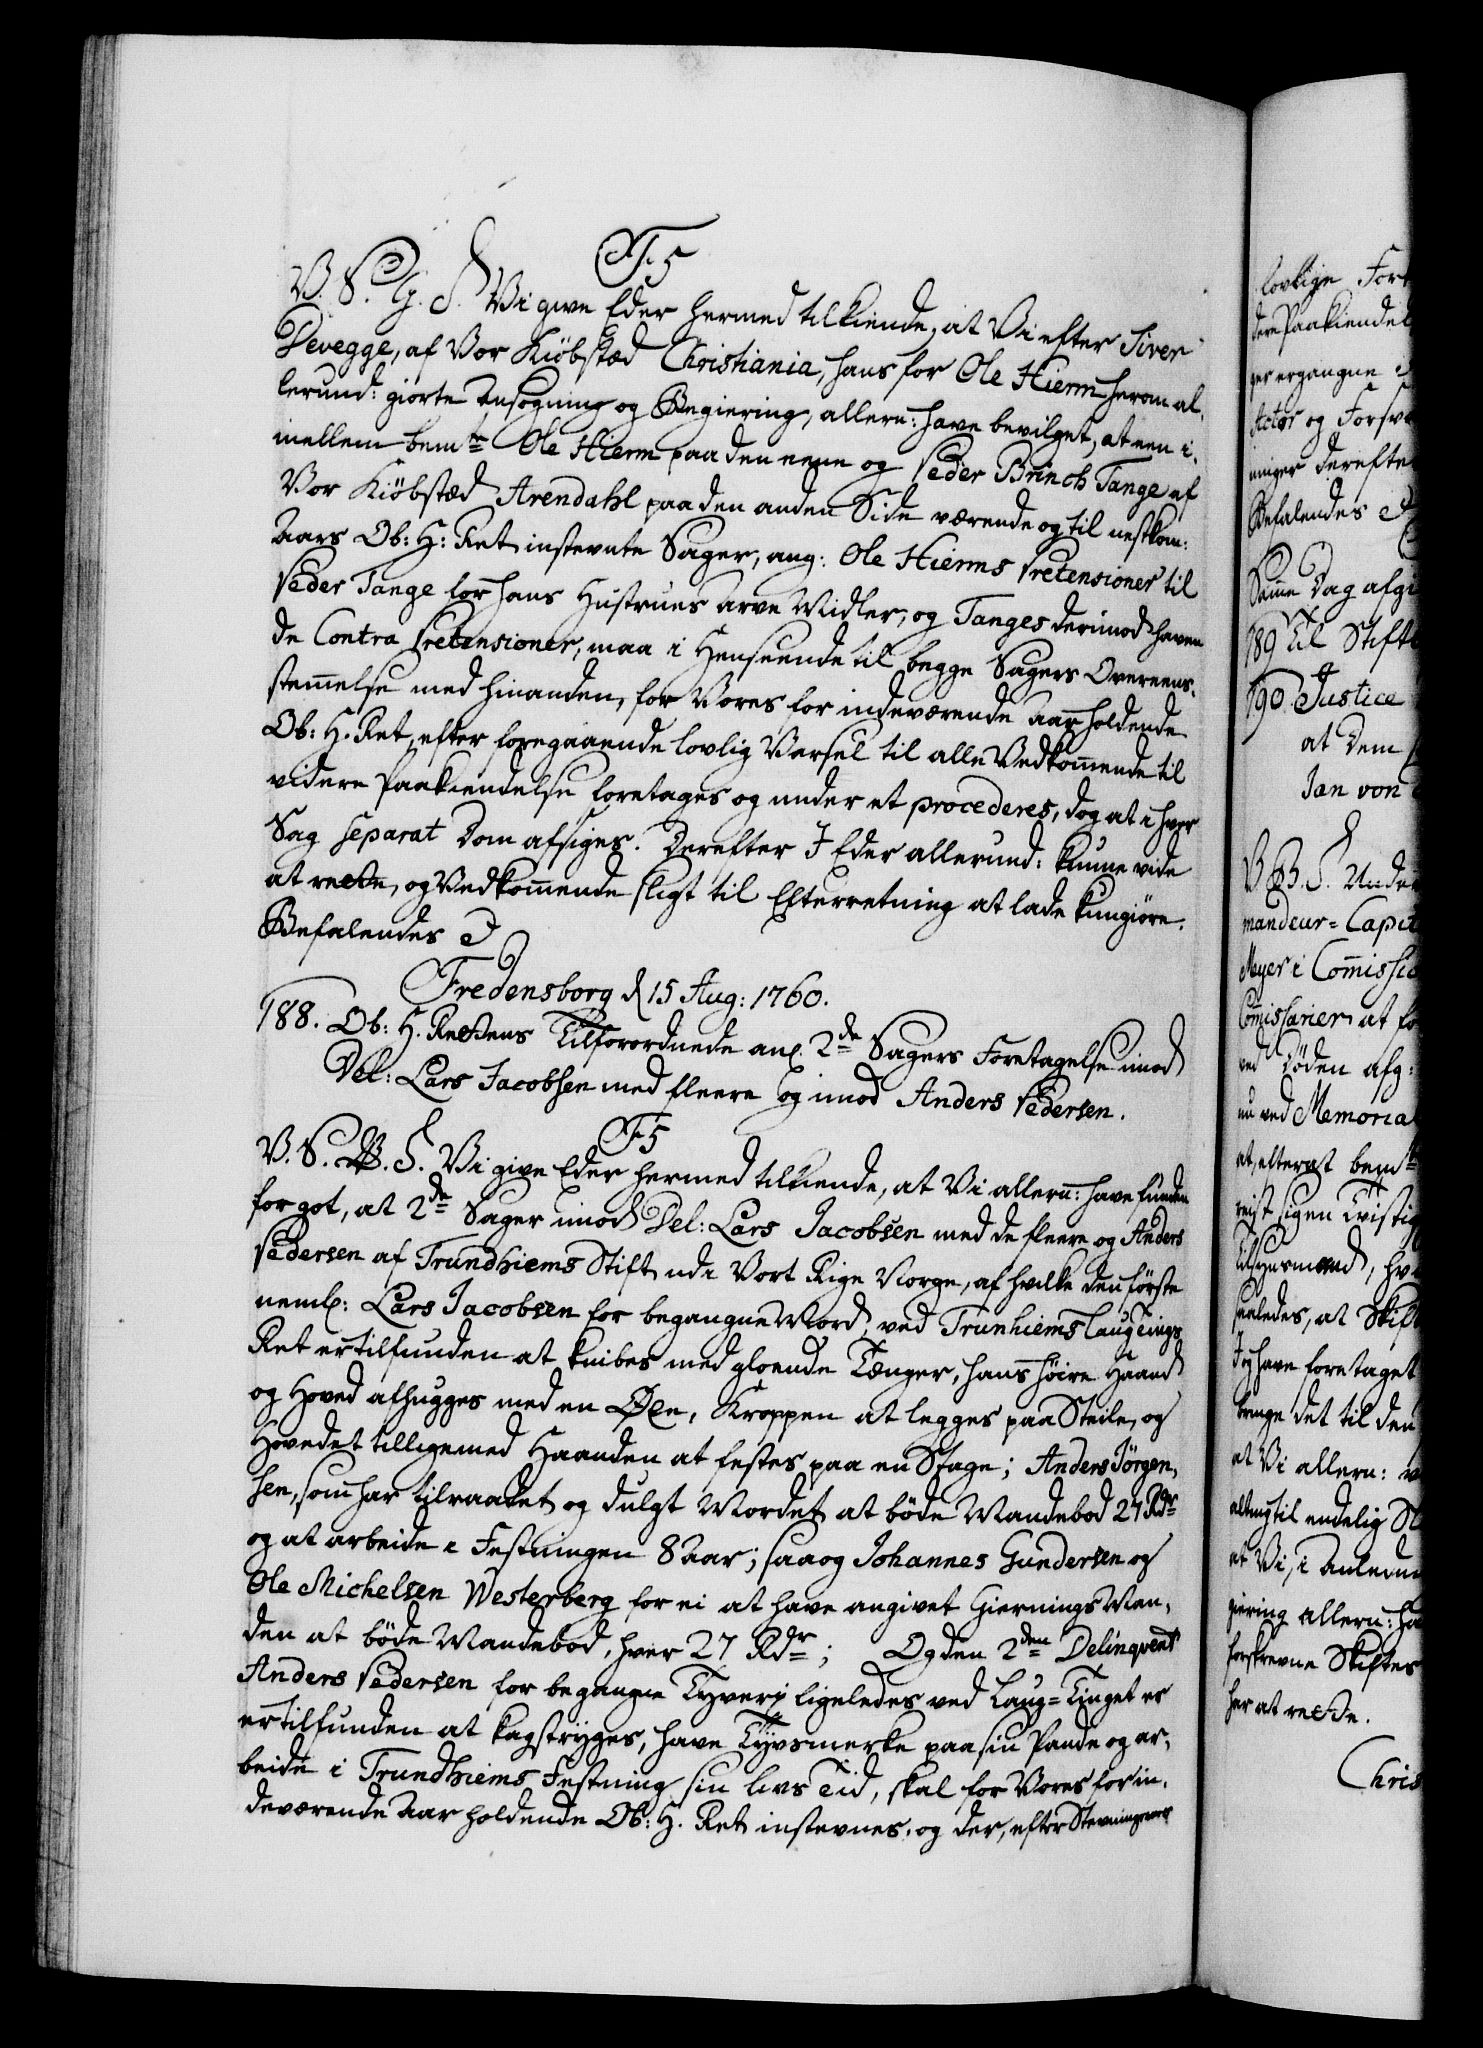 F5
V. S. G. S. Vi give Eder hermed tilkiende, at Vi efter Siver
Devegge, af Vor Kiöbstæd Christiania, hans for Ole Hierm herom al,,
lerund: giorte Ansögning og Begiering, allern: have bevilget, at een i,,
mellem bemte Ole Hierm paa den eene og Peder Brinch Tange af
Vor Kiöbstæd Arendahl paa den anden Side værende og til nestkom:
Aars Ob: H: Ret instevnte Sager, ang: Ole Hierms Pretensioner til
Peder Tange for hans Hustrues Arve Midler, og Tanges derimod haven
de Contra Pretensioner, maa i Henseende til begge Sagers Overeens,,
stemmelse med hinanden, for Vores for indeværende Aar holdende
Ob: H. Ret, efter foregaaende lovlig Varsel til alle Vedkommende til
videre Paakiendelse foretages og under et procederes, dog at i hver
Sag separat Dom afsiges. Derefter I Eder allerund: kunne vide
at rette, og Vedkommende sligt til Efterretning at lade kungiöre.
Befalendes
Fredensborg d 15 Aug: 1760.
188. Ob: H. Rettens Tilforordnede anl. 2de Sagers Foretagelse imod
Del: Lars Jacobsen med fleere og imod Anders Pedersen.
F5
V. S. G. S. Vi give Eder hermed tilkiende, at Vi allern: have funden
for got, at 2de Sager imod Del: Lars Jacobsen med de fleere og Anders
Pedersen af Trundhiems Stift udi Vort Rige Norge, af hvilke den förste
neml: Lars Jacobsen for begangne Mord, ved Trunhiems LaugTings
Ret er tilfunden at knibes med gloende Tænger, hans höire Haand
og Hoved afhugges med en Öxe, Kroppen at legges paa Steile, og
Hovedet tilligemed Haanden at festes paa en Stage; Anders Jörgen,,
sen, som har tilraadet og dulgt Mordet at böde Mandebod 27 Rdr
og at arbeide i Festningen 8 Aar; saa og Johannes Gundersen og
Ole Michelsen Westerberg for ei at have angivet Giernings Man,,
den at böde Mandebod, hver 27 Rdr; Og den 2den Delinqvent
Anders Pedersen for begangne Tyverj ligeledes ved Laug=Tinget er
er tilfunden at kagstryges, have Tyvsmerke paa sin Pande og ar,,
beide i Trundhiems Festning sin livs Tid, skal for Vores for in,,
deværende Aar holdende Ob: H. Ret instevnes, og der, efter Stevningernes
lovlige For
dere Paakiendel
ger ergangne
Actor og Forsva
ninger derefter
Befalendes
Samme Dag afgi
189 Til Stift
190. Justice
at Dem
Jan von
V. G. S. Unde
mandeur=Capit
Meyer i Commissio
Commissarier at fo
ved Döden afg:
nu ved Memoria
at, efterat bemte
reist sig en Tvistig
saaledes, at Skift
I have foretaget
bringe det til den
at Vi allern:
alting til endelig
at Vi, i Anledn
giering allern: ha
forskrevne Skiftes
her at rette.
Chris